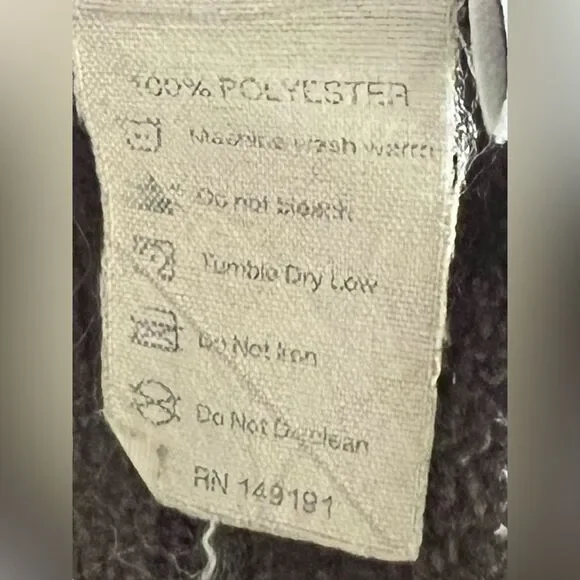 100% POLYESTER
Machine wash warm
Do not bleach
Tumble Dry Low
Do Not Iron
Do Not Dryclean
RN 149191